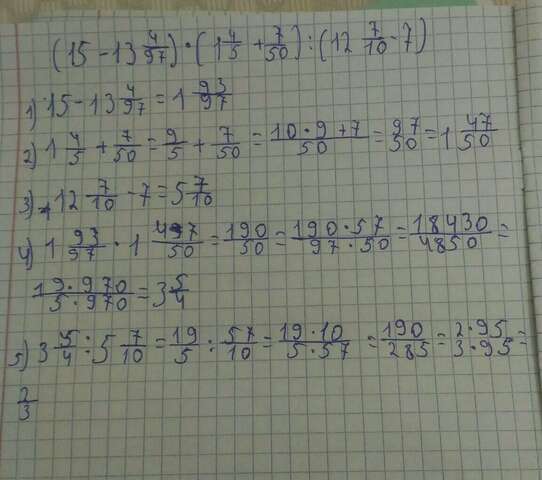 (15 - 13 4/97) · (1 4/5 + 7/50) : (12 7/10 - 7)
1) 15 - 13 4/97 = 1 93/97
2) 1 4/5 + 7/50 = 9/5 + 7/50 = 10·9+7/50 = 97/50 = 1 47/50
3) 12 7/10 - 7 = 5 7/10
4) 1 93/97 · 1 47/50 = 190/50 = 190·57/97·50 = 18430/4850 =
19·970/5·970 = 3 5/4
5) 3 5/4 : 5 7/10 = 19/5 : 57/10 = 19·10/5·57 = 190/285 = 2·95/3·95 =
2/3